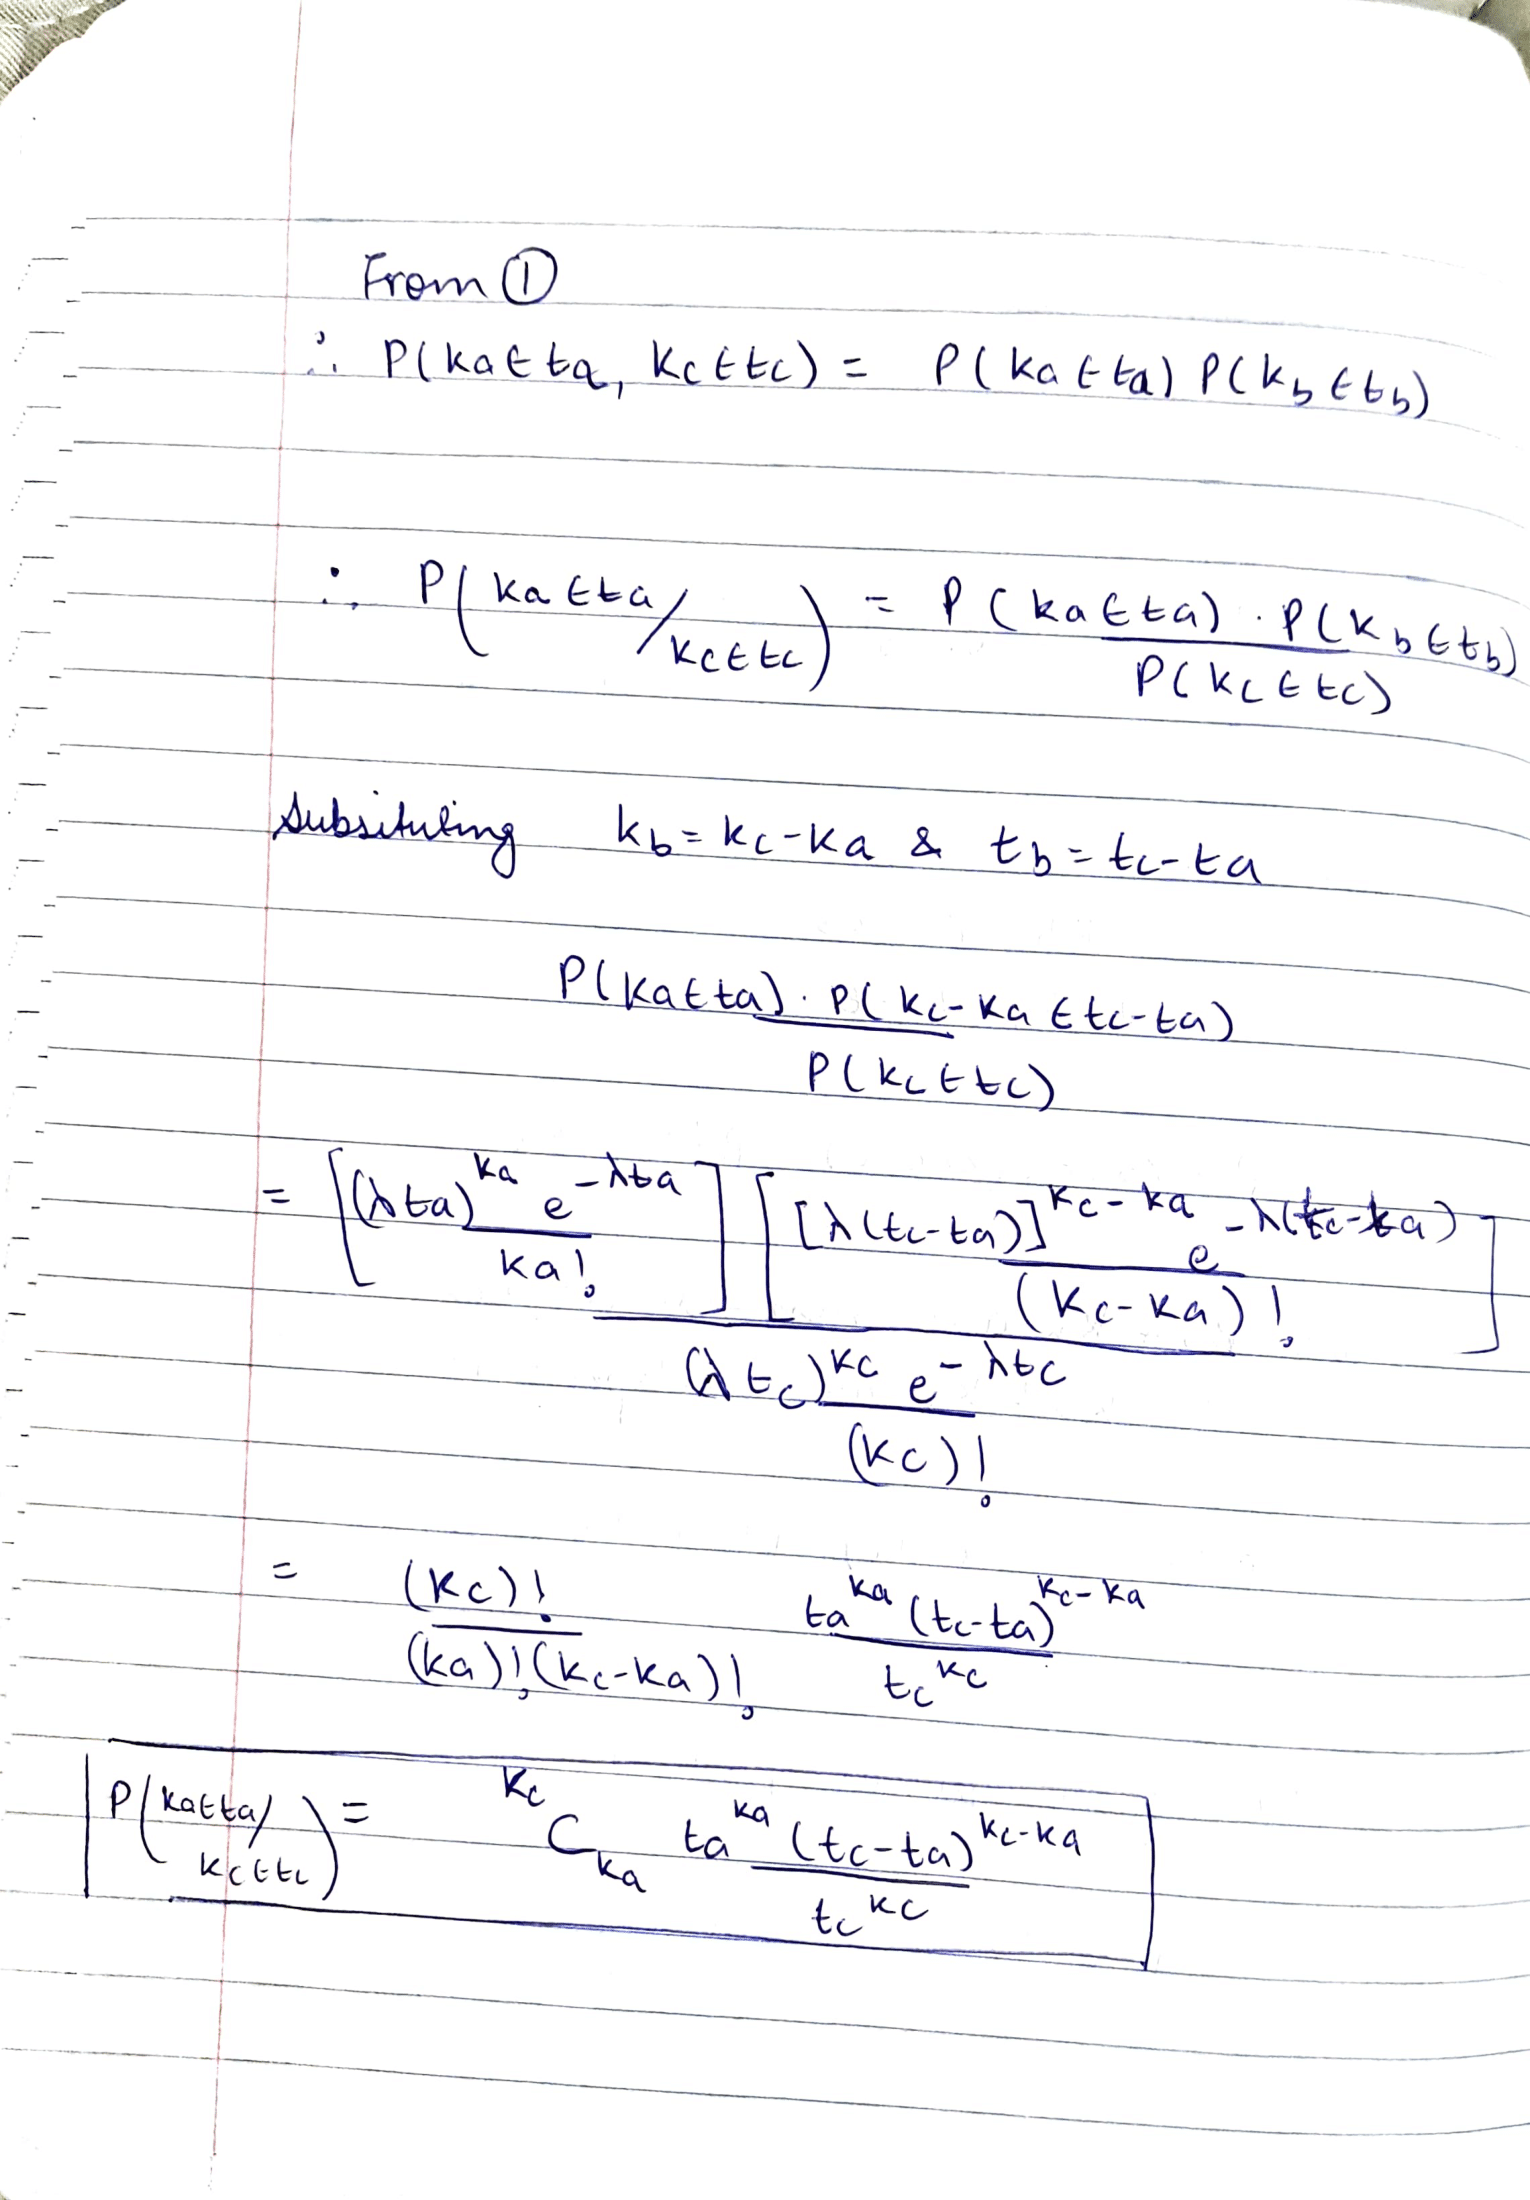 From ①
∴ P(ka ∈ ta, kc ∈ tc) = P(ka ∈ ta) P(kb ∈ tb)
∴ P(ka ∈ ta / kc ∈ tc) = P(ka ∈ ta) . P(kb ∈ tb) / P(kc ∈ tc)
Subsituting kb = kc-ka & tb = tc-ta
P(ka ∈ ta) . P(kc-ka ∈ tc-ta) / P(kc ∈ tc)
= [(λta)^ka e^-λta / ka!] [[λ(tc-ta)]^kc-ka e^-λ(tc-ta) / (kc-ka)!] / (λtc)^kc e^-λtc / (kc)!
= (kc)! / (ka)!(kc-ka)! ta^ka (tc-ta)^kc-ka / tc^kc
P(ka ∈ ta / kc ∈ tc) = ^kc C_ka ta^ka (tc-ta)^kc-ka / tc^kc